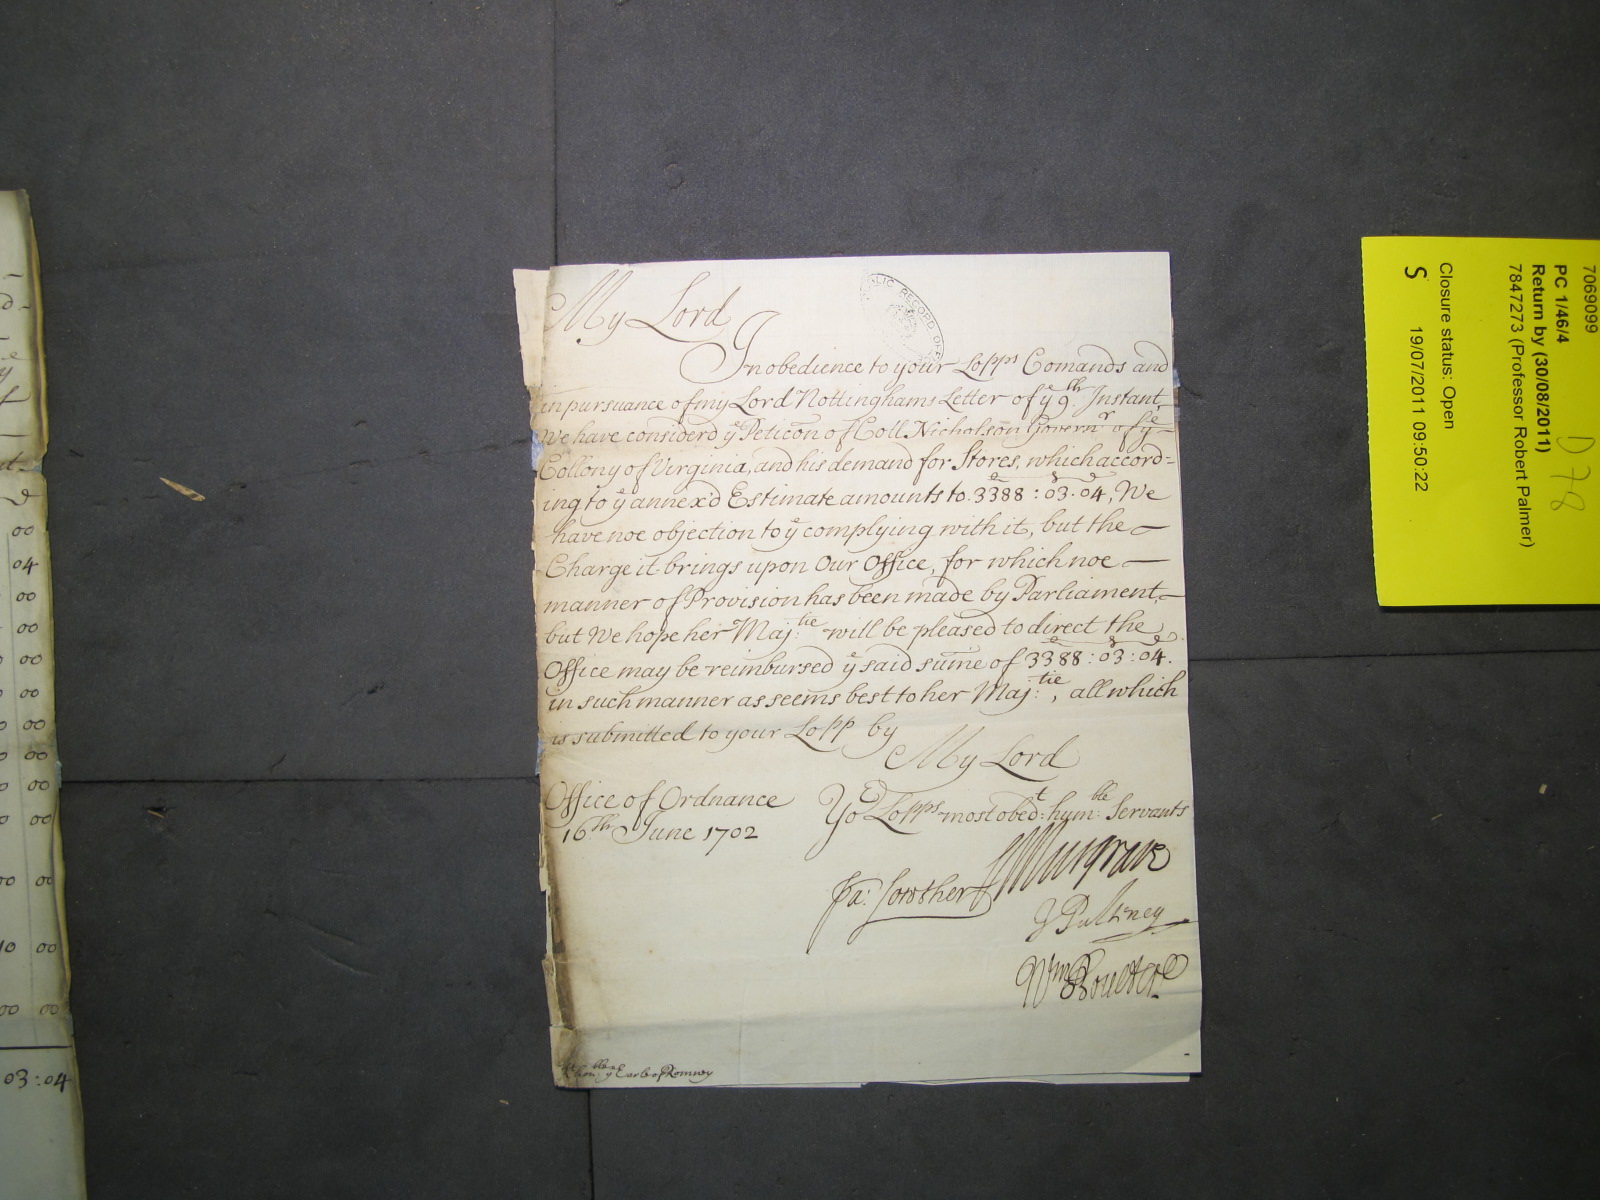 My Lord
In obedience to your Lopps Comands and
in pursuance of my Lord Nottinghams Letter of ye 9th. Instant,
We have considerd ye Peticõn of Coll. Nicholson Governr of ye
Collony of Virginia, and his demand for Stores, which accord=
ing to ye annex'd Estimate amounts to 3388 : 03 . 04, We
have noe objection to ye complying with it, but the
Charge it brings upon Our Office, for which noe
manner of Provision has been made by Parliament,
but We hope her Maj:tie will be pleased to direct the
Office may be reimbursed ye said sume of 3388 : 03 : 04.
in such manner as seems best to her Maj:tie, all which
is submitted to your Lopp by
My Lord
Office of Ordnance
16th June 1702
Yor Lopps most obedt: humble: Servants
CMusgrave
Ja: Lowther
J Pulteney
Wm Boulter
ye Earle of Romney
PUBLIC RECORD OFF
00
04
00
00
00
00 00
00 00
00 00
00
00
10 00
00 00
03 : 04
7069099
PC 1/46/4
Return by (30/08/2011)
7847273 (Professor Robert Palmer)
D 78
Closure status: Open
S 19/07/2011 09:50:22